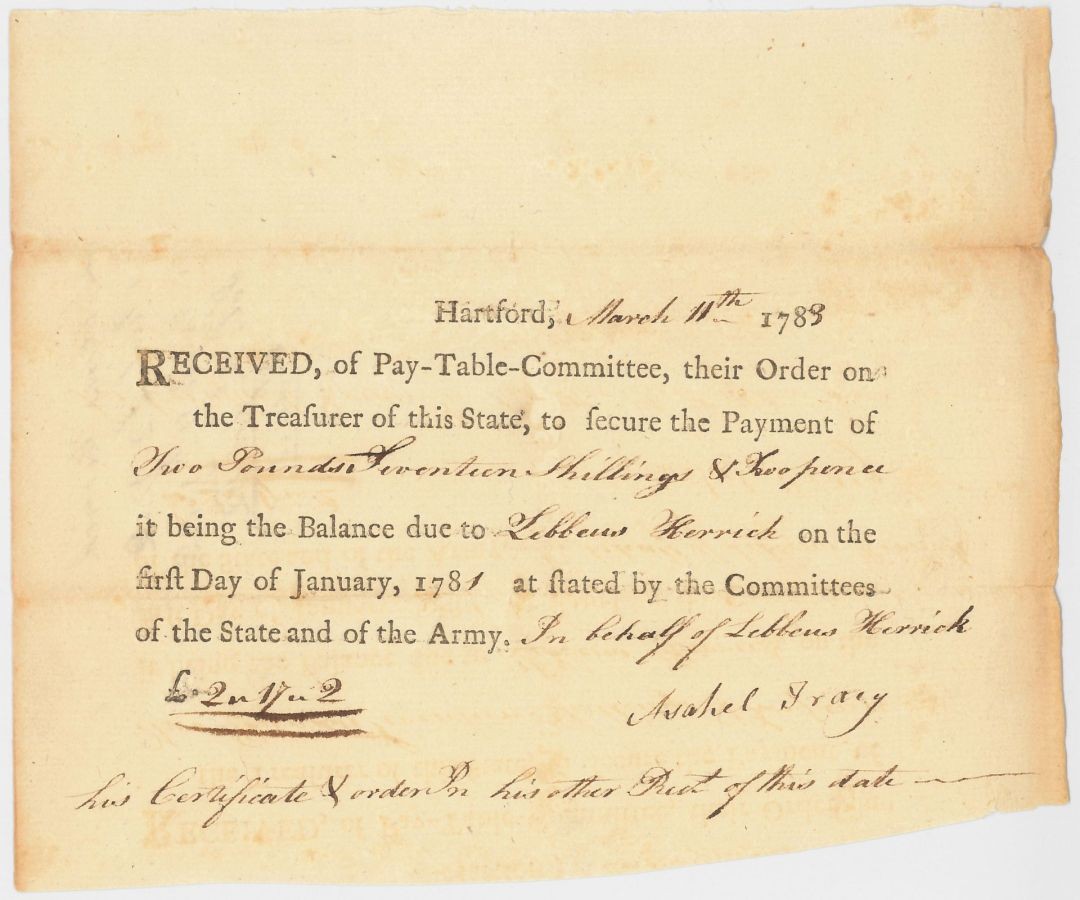 Hartford, March 11th 1783
RECEIVED, of Pay-Table-Committee, their Order on
the Treaſurer of this State, to ſecure the Payment of
Two Pounds Seventeen Shillings & Two pence
it being the Balance due to Lebbeus Herrick on the
firſt Day of January, 1781 at ſtated by the Committees
of the State and of the Army. In behalf of Lebbeus Herrick
£. 2 „ 17 „ 2
Asahel Tracy
his Certificate & order In his other Rect of this date